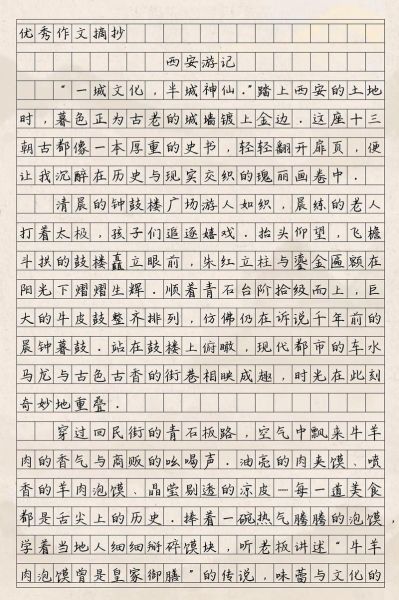 优秀作文摘抄
西安游记
“一城文化，半城神仙．”踏上西安的土地
时，暮色正为古老的城墙镀上金边．这座十三
朝古都像一本厚重的史书，轻轻翻开扉页，便
让我沉醉在历史与现实交织的瑰丽画卷中．
清晨的钟鼓楼广场游人如织，晨练的老人
打着太极，孩子们追逐嬉戏．抬头仰望，飞檐
斗拱的鼓楼矗立眼前，朱红立柱与鎏金匾额在
阳光下熠熠生辉．顺着青石台阶拾级而上，巨
大的牛皮鼓整齐排列，仿佛仍在诉说千年前的
晨钟暮鼓．站在鼓楼上俯瞰，现代都市的车水
马龙与古色古香的街巷相映成趣，时光在此刻
奇妙地重叠．
穿过回民街的青石板路，空气中飘来牛羊
肉的香气与商贩的吆喝声．油亮的肉夹馍、喷
香的羊肉泡馍、晶莹剔透的凉皮—每一道美食
都是舌尖上的历史．捧着一碗热气腾腾的泡馍，
学着当地人细细掰碎馍块，听老板讲述“牛羊
肉泡馍曾是皇家御膳”的传说，味蕾与文化的